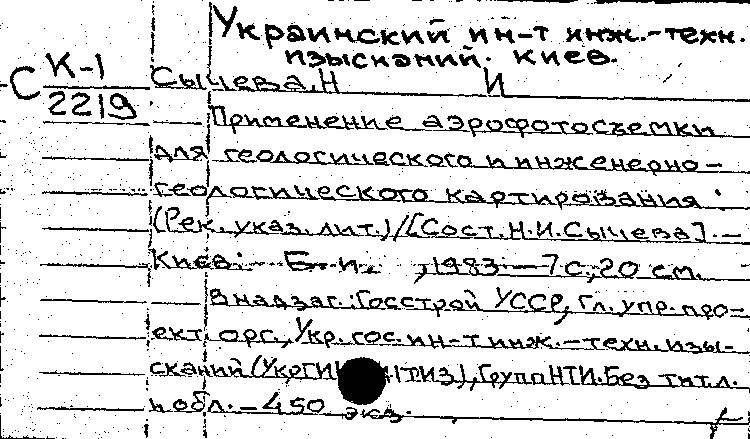 Украинский ин-т инж.-техн.
изысканий. Киев.
С К-1
2219
Сычева, Н И
Применение аэрофотосъемки
для геологического и инженерно-
геологического картирования :
(Рек. указ. лит.) / [Сост. Н.И. Сычева]. —
Киев: Б. и. , 1983 — 7 с; 20 см.
В надзаг.: Госстрой УССР, Гл. упр. про-
ект. орг., Укр. гос. ин-т инж.-техн. изы-
сканий (УкрГИ ТИЗ), Группа НТИ. Без тит. л.
и обл. — 450 экз.